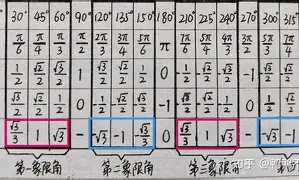 30° 45° 60° 90° 120° 135° 150° 180° 210° 225° 240° 270° 300° 315°
π/6 π/4 π/3 π/2 2π/3 3π/4 5π/6 π 7π/6 5π/4 4π/3 3π/2 5π/3 7π/4
1/2 √2/2 √3/2 1 √3/2 √2/2 1/2 0 -1/2 -√2/2 -√3/2 -1 -√3/2 -√2/2
√3/2 √2/2 1/2 0 -1/2 -√2/2 -√3/2 -1 -√3/2 -√2/2 -1/2 0 1/2 √2/2
√3/3 1 √3 - -√3 -1 -√3/3 0 √3/3 1 √3 - -√3 -1
第一象限角 第二象限角 第三象限角
知乎